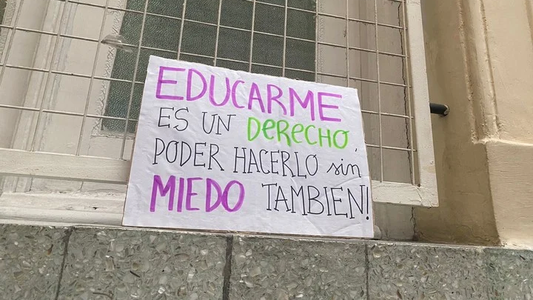 EDUCARME
ES UN DERECHO,
PODER HACERLO sin
MIEDO TAMBIEN!